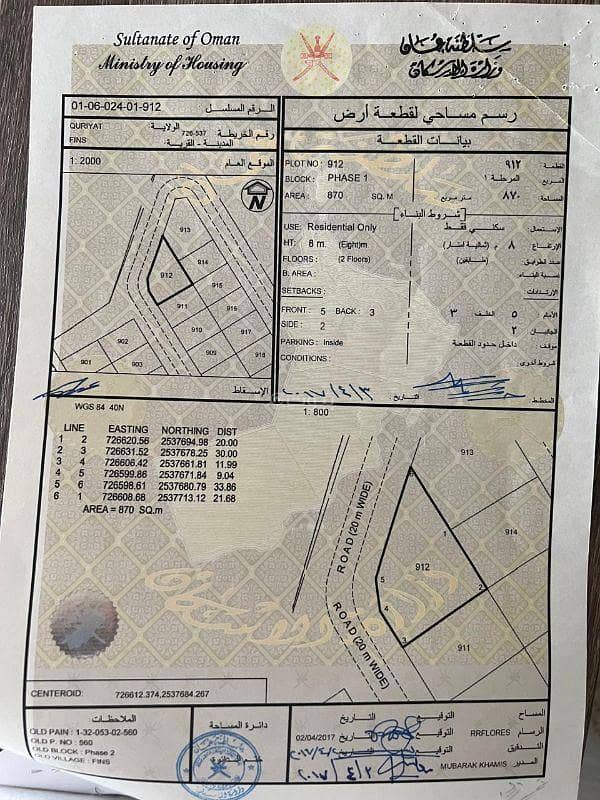 Sultanate of Oman
Ministry of Housing
سلطنة عمان
وزارة الإسكان
01-06-024-01-912 الرقم المسلسل
رسم مساحي لقطعة أرض
QURIYAT الولاية
726-537 رقم الخريطة
FINS المدينة - القرية
بيانات القطعة
1: 2000 الموقع العام
N
PLOT NO : 912 ٩١٢ القطعة
BLOCK : PHASE 1 المرحلة ١ المربع
AREA : 870 SQ. M متر مربع ٨٧٠ المساحة
شروط البناء
USE: Residential Only سكني فقط الاستعمال
HT: 8 m. (Eight)m ٨ م (ثمانية أمتار) الإرتفاع
FLOORS : (2 Floors) (طابقين) عدد الطوابق
B. AREA : نسبة البناء
SETBACKS : الإرتدادات
FRONT : 5 BACK : 3 ٣ الخلف ٥ الأمام
SIDE : 2 ٢ الجانبان
PARKING : Inside داخل حدود القطعة موقف
CONDITIONS : شروط أخرى
913
914
912
915
911
916
910
917
909
918
902
903
901
الإسقاط
٢٠١٧/٤/٣ التاريخ المخطط
WGS 84 40N
1: 800
LINE EASTING NORTHING DIST
1 2 726620.56 2537694.98 20.00
2 3 726631.52 2537678.25 30.00
3 4 726606.42 2537661.81 11.99
4 5 726599.86 2537671.84 9.04
5 6 726598.61 2537680.79 33.86
6 1 726608.68 2537713.12 21.68
AREA = 870 SQ.m
913
914
912
911
1
2
3
4
5
ROAD (20 m WIDE)
ROAD (20 m WIDE)
CENTEROID: 726612.374,2537684.267
الملاحظات
OLD PAIN : 1-32-053-02-560
OLD P. NO : 560
OLD BLOCK : Phase 2
OLD VILLAGE : FINS
دائرة المساحة
التاريخ التوقيع المساح
02/04/2017 التاريخ التوقيع RRFLORES الرسام
التاريخ التوقيع التدقيق
التاريخ التوقيع MUBARAK KHAMIS المدير